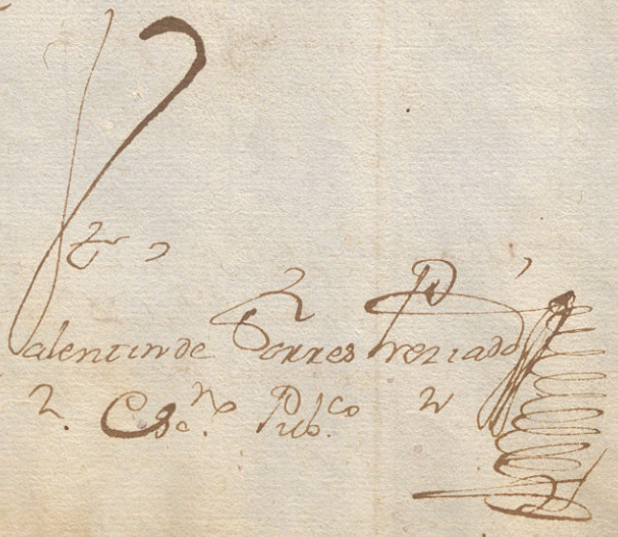 Valentin de Torres Preziado
Essno. Pubco.